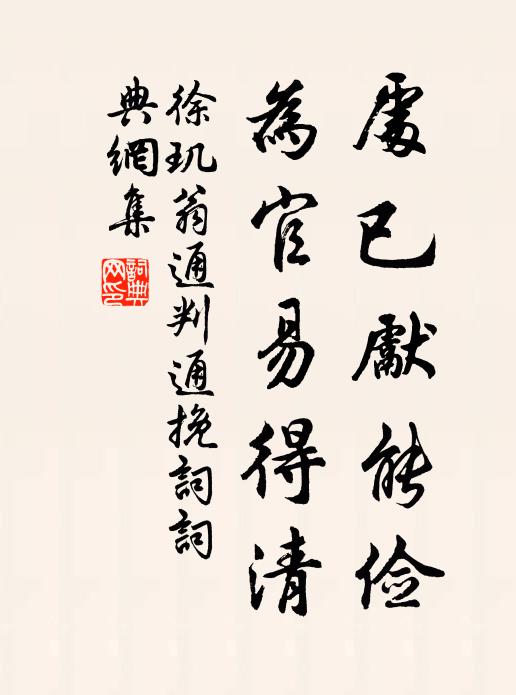 處已獻能俭
為官易得清
徐玑翁通判通挽詞詞
典網集
詞典
网印